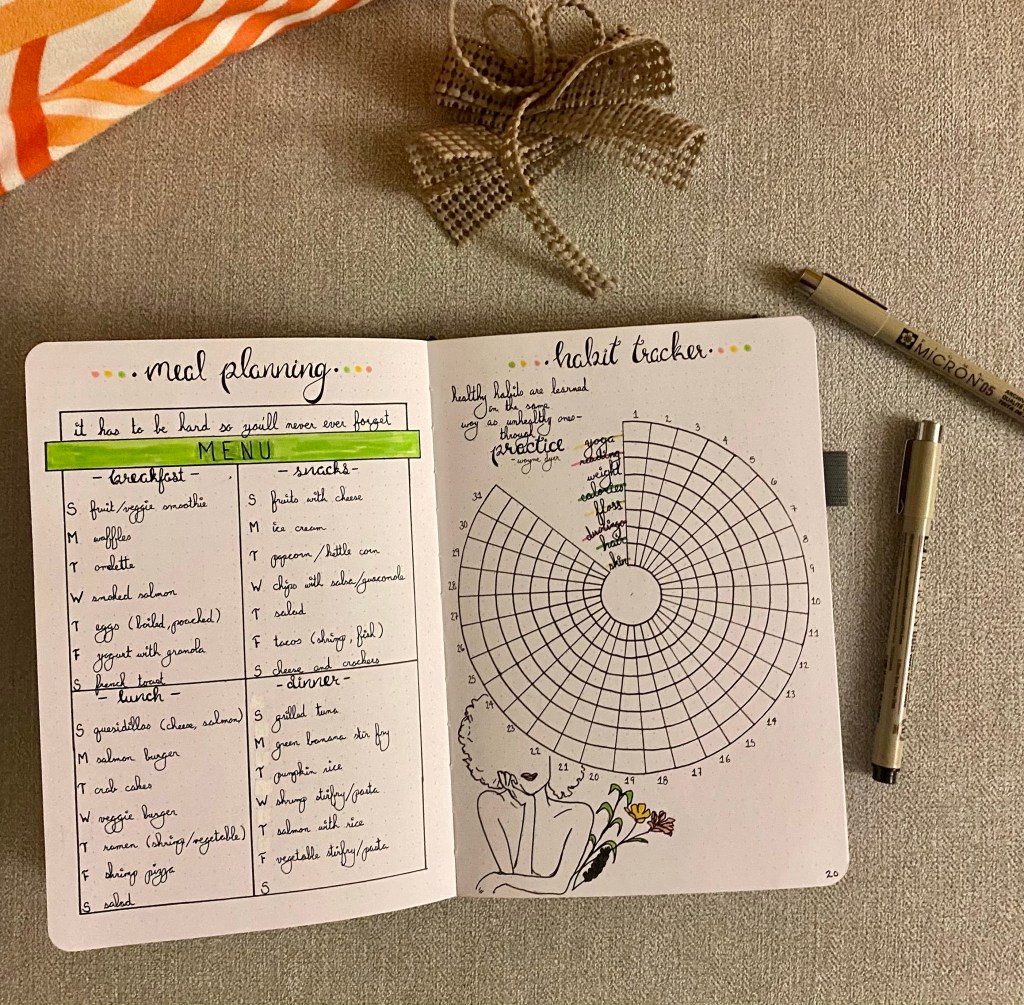 meal planning
it has to be hard so you'll never ever forget
MENU
- breakfast -
S fruit/veggie smoothie
M waffles
T omlette
W smoked salmon
T eggs (boiled, poached)
F yogurt with granola
S french toast
- snacks -
S fruits with cheese
M ice cream
T popcorn / kettle corn
W chips with salsa/guacomole
T salad
F tacos (shrimp, fish)
S cheese and crackers
- lunch -
S quesidillas (cheese, salmon)
M salmon burger
T crab cakes
W veggie burger
T ramen (shrimp/vegetable)
F shrimp pizza
S salad
- dinner -
S grilled tuna
M green banana stir fry
T pumpkin rice
W shrimp stirfry/pasta
T salmon with rice
F vegetable stirfry/pasta
S
habit tracker
healthy habits are learned
in the same
way as unhealthy ones-
through
practice
- wayne dyer
yoga
reading
weight
calories
floss
duolingo
hair
skin
1
2
3
4
5
6
7
8
9
10
11
12
13
14
15
16
17
18
19
20
21
22
23
24
25
26
27
28
29
30
31
20
MICRON 05